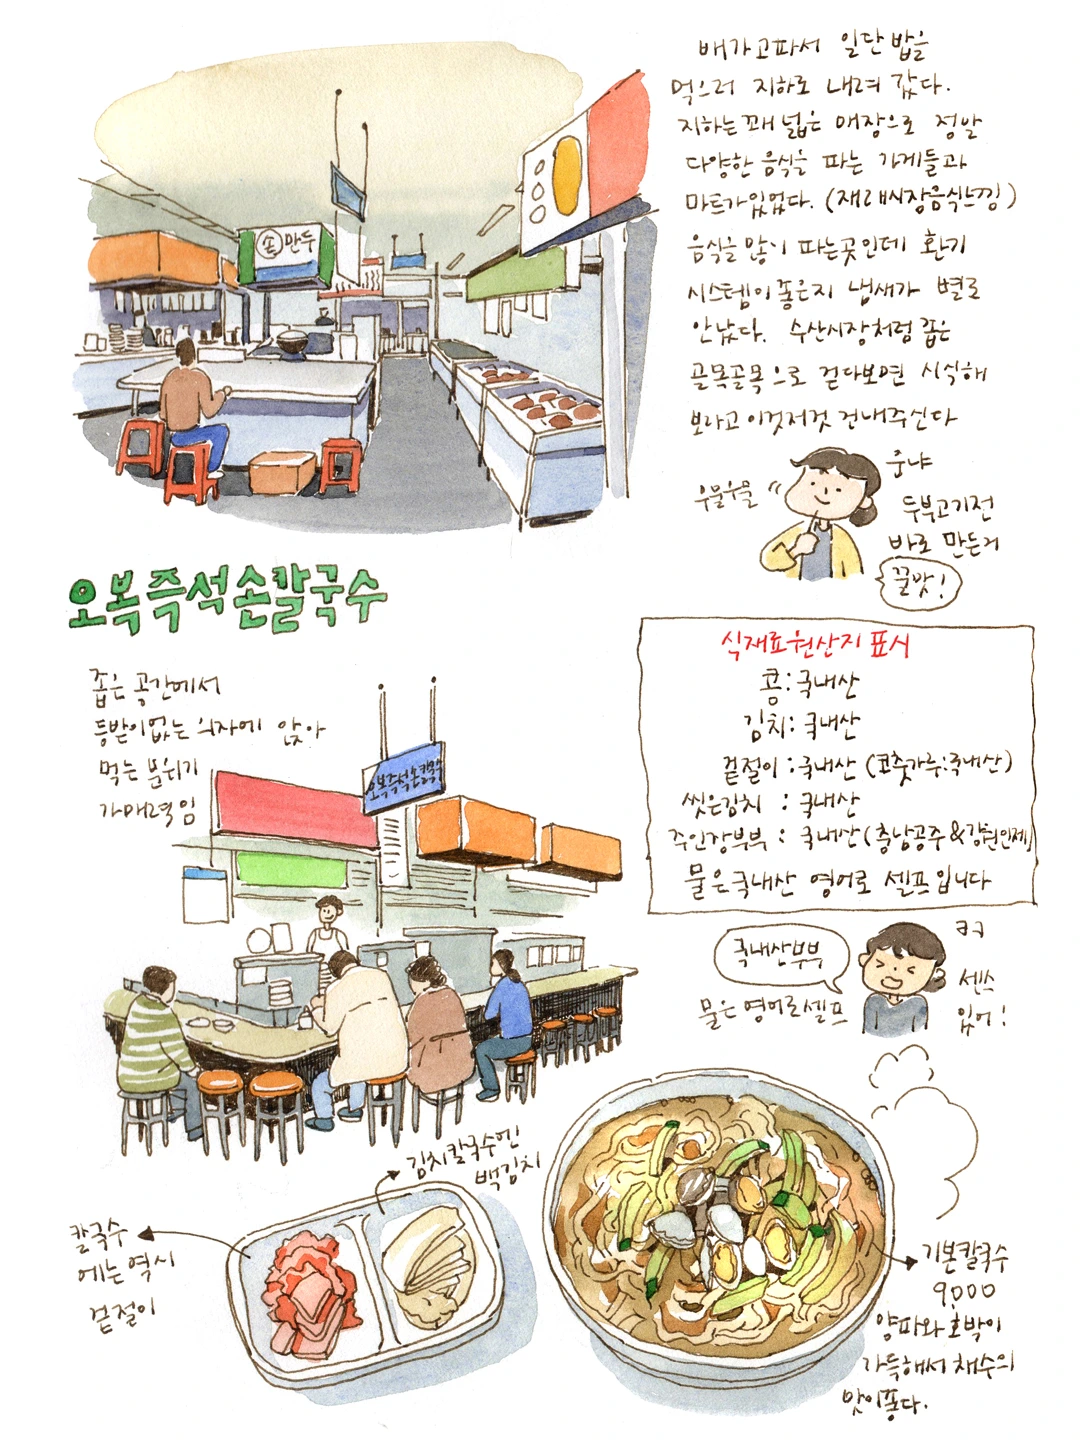 배가고파서 일단 밥을
먹으러 지하로 내려 갔다.
지하는 꽤 넓은 매장으로 정말
다양한 음식을 파는 가게들과
마트가있었다. (재래시장음식느낌)
음식을 많이 파는곳인데 환기
시스템이 좋은지 냄새가 별로
안났다. 수산시장처럼 좁은
골목골목으로 걷다보면 시식해
보라고 이것저것 건내주신다
손만두
우물우물
준냐
두부고기전
바로 만든거
꿀맛!
오복즉석손칼국수
좁은 공간에서
등받이없는 의자에 앉아
먹는 분위기
가매력임
오복즉석손칼국수
식재료원산지 표시
콩:국내산
김치: 국내산
겉절이:국내산 (고춧가루:국내산)
씻은김치 : 국내산
주인장부부 : 국내산(충남공주&강원인제)
물은국내산 영어로 셀프입니다
국내산부부
물은영어로셀프
ㅋㅋ
센스
있어!
김치칼국수엔
백김치
칼국수
에는역시
겉절이
기본칼국수
9,000
양파와호박이
가득해서 채수의
맛이좋다.